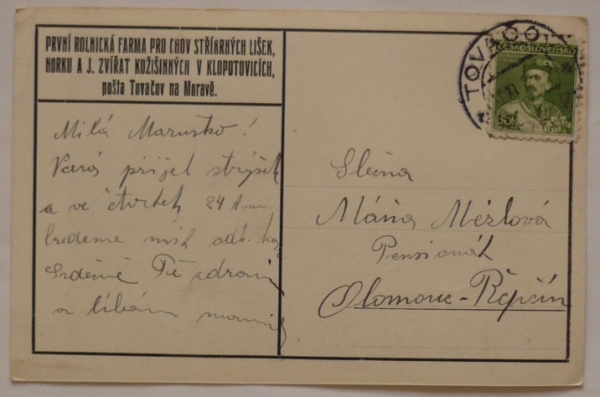 PRVNÍ ROLNICKÁ FARMA PRO CHOV STŘÍBRNÝCH LIŠEK,
NORKU A J. ZVÍŘAT KOŽIŠINNÝCH V KLOPOTOVICÍCH,
pošta Tovačov na Moravě.
Milá Maruško!
Včera přijel strýček
a ve čtvrtek 24 t.m.
budeme mít
Srdečně Tě zdraví
a líbám
TOVAČOV
ČESKOSLOVENSKO
50h
Slečna
Máňa Mézlová
Pensionát
Olomouc-Řepčín